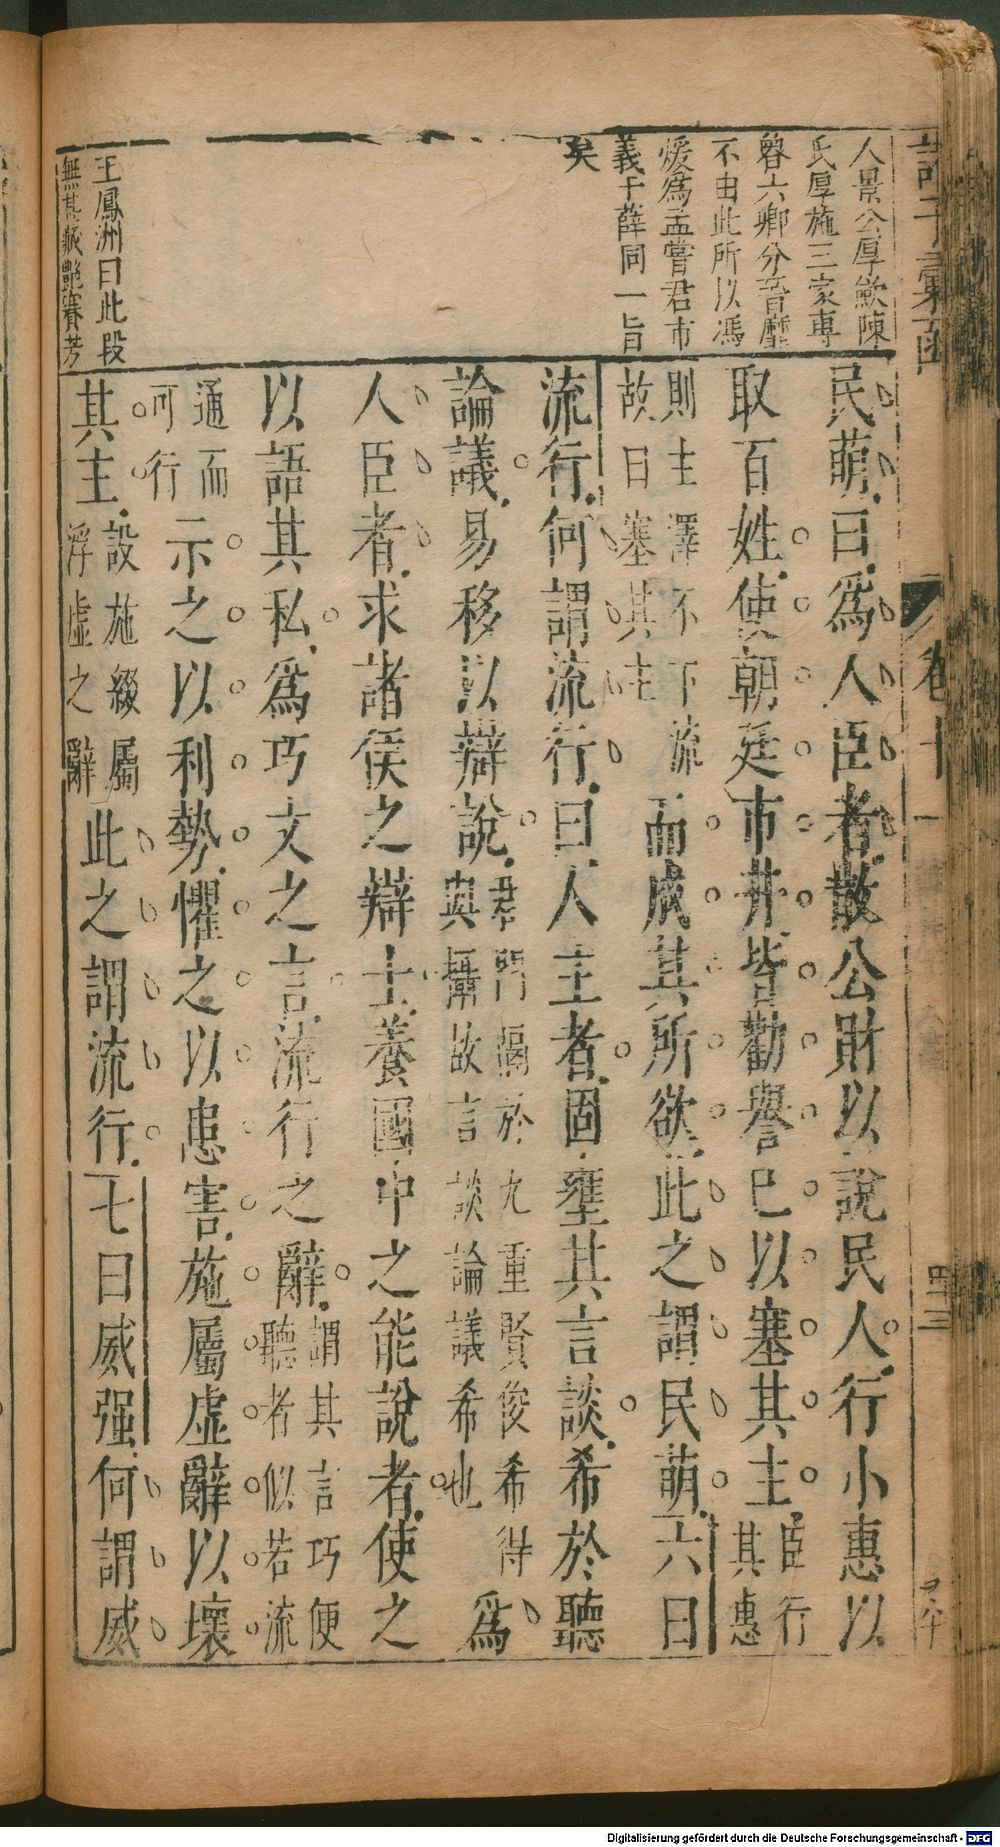 諸子彙函
卷十一
四十三
人景公厚斂陳
氏厚施三家專
魯六卿分晉靡
不由此所以馮
煖爲孟嘗君市
義于薛同一旨
矣
王鳳洲曰此段
艷賽芳
民萌曰爲人臣者散公財以說民人行小惠以
取百姓使朝廷市井皆勸譽已以塞其主臣行其惠
則主澤不下流故曰塞其主而成其所欲此之謂民萌六曰
流行何謂流行曰人主者固壅其言談希於聽
論議易移以辯說君門隔於九重賢俊希得與攝故言談論議希也爲
人臣者求諸侯之辯士養國中之能說者使之
以語其私爲巧文之言流行之辭謂其言巧便聽者似若流
通而可行示之以利勢懼之以患害施屬虛辭以壞
其主設施綴屬浮虛之辭此之謂流行七曰威强何謂威
Digitalisierung gefördert durch die Deutsche Forschungsgemeinschaft - DFG